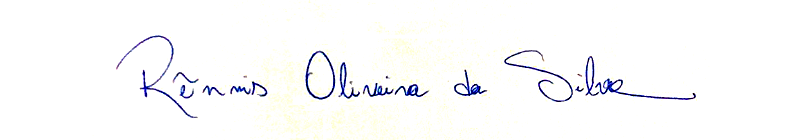 Rẽnnis Oliveira da Silva